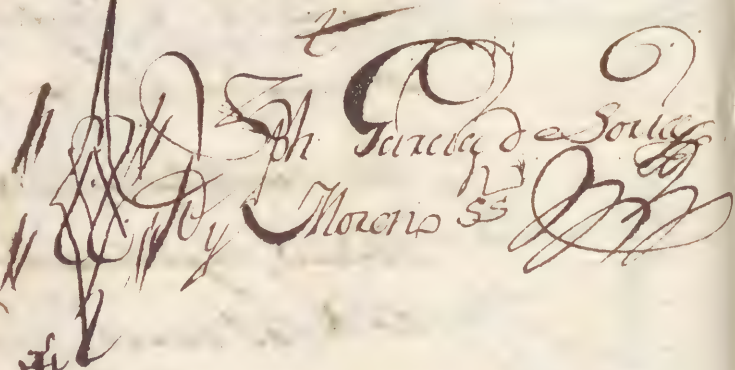 Jph Garcia de Soria
y Moreno SS